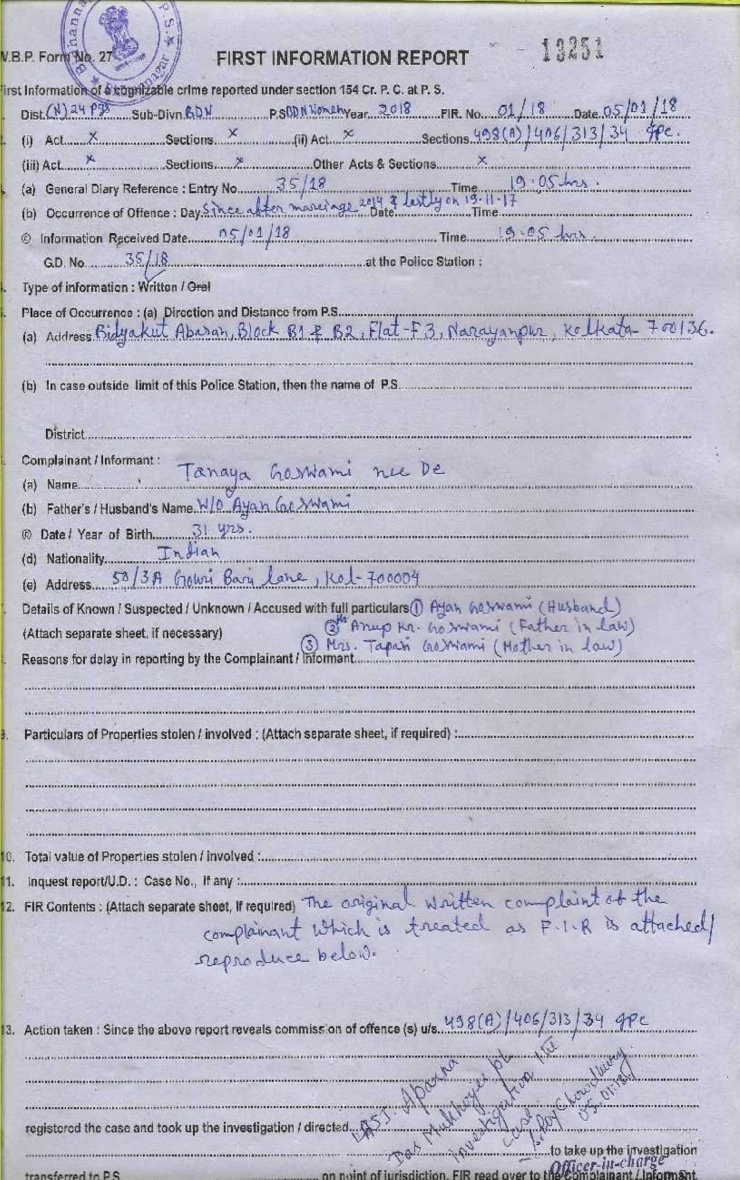 Bidhanna P.S.
W.B.P. Form No. 27
FIRST INFORMATION REPORT
13251
First Information of a cognizable crime reported under section 154 Cr. P. C. at P. S.
Dist. (N) 24 Pgs Sub-Divn. BDN P.S BDN Women Year. 2018 FIR. No. 01/18 Date. 05/01/18
(i) Act. x Sections. x (ii) Act. x Sections. 498(A)/406/313/34 IPC.
(iii) Act. x Sections. x Other Acts & Sections. x
(a) General Diary Reference : Entry No. 35/18 Time 19.05 hrs.
(b) Occurrence of Offence : Day. Since after marriage 2014 & lastly on 19-11-17 Date Time
© Information Received Date. 05/01/18 Time. 19.05 hrs.
G.D. No. 35/18 at the Police Station :
Type of information : Written / Oral
Place of Occurrence : (a) Direction and Distance from P.S.
(a) Address Bidyakut Abasan, Block B1 & B2, Flat-F3, Narayanpur, Kolkata 700136.
(b) In case outside limit of this Police Station, then the name of P.S.
District
Complainant / Informant :
(a) Name Tanaya Goswami nee De
(b) Father's / Husband's Name. W/O Ayan Goswami
© Date / Year of Birth 31 yrs.
(d) Nationality Indian
(e) Address 50/3A Gouri Bari Lane, Kol-700004
Details of Known / Suspected / Unknown / Accused with full particulars ① Ayan Goswami (Husband)
(Attach separate sheet, if necessary) ② Anup Kr. Goswami (Father in law)
③ Mrs. Tapasi Goswami (Mother in law)
Reasons for delay in reporting by the Complainant / Informant
9. Particulars of Properties stolen / involved : (Attach separate sheet, if required) :
10. Total value of Properties stolen / involved :
11. Inquest report/U.D. : Case No., if any :
12. FIR Contents : (Attach separate sheet, if required) The original written complaint of the
complainant which is treated as F.I.R is attached/
reproduce below.
13. Action taken : Since the above report reveals commission of offence (s) u/s. 498(A)/406/313/34 IPC
registered the case and took up the investigation / directed. ASI Aparna
Das Mukherjee
Investigation
case
Roy Chowdhury
05.01.18
to take up the investigation
Officer-in-charge
transferred to P.S. on point of jurisdiction. FIR read over to the Complainant / Informant,